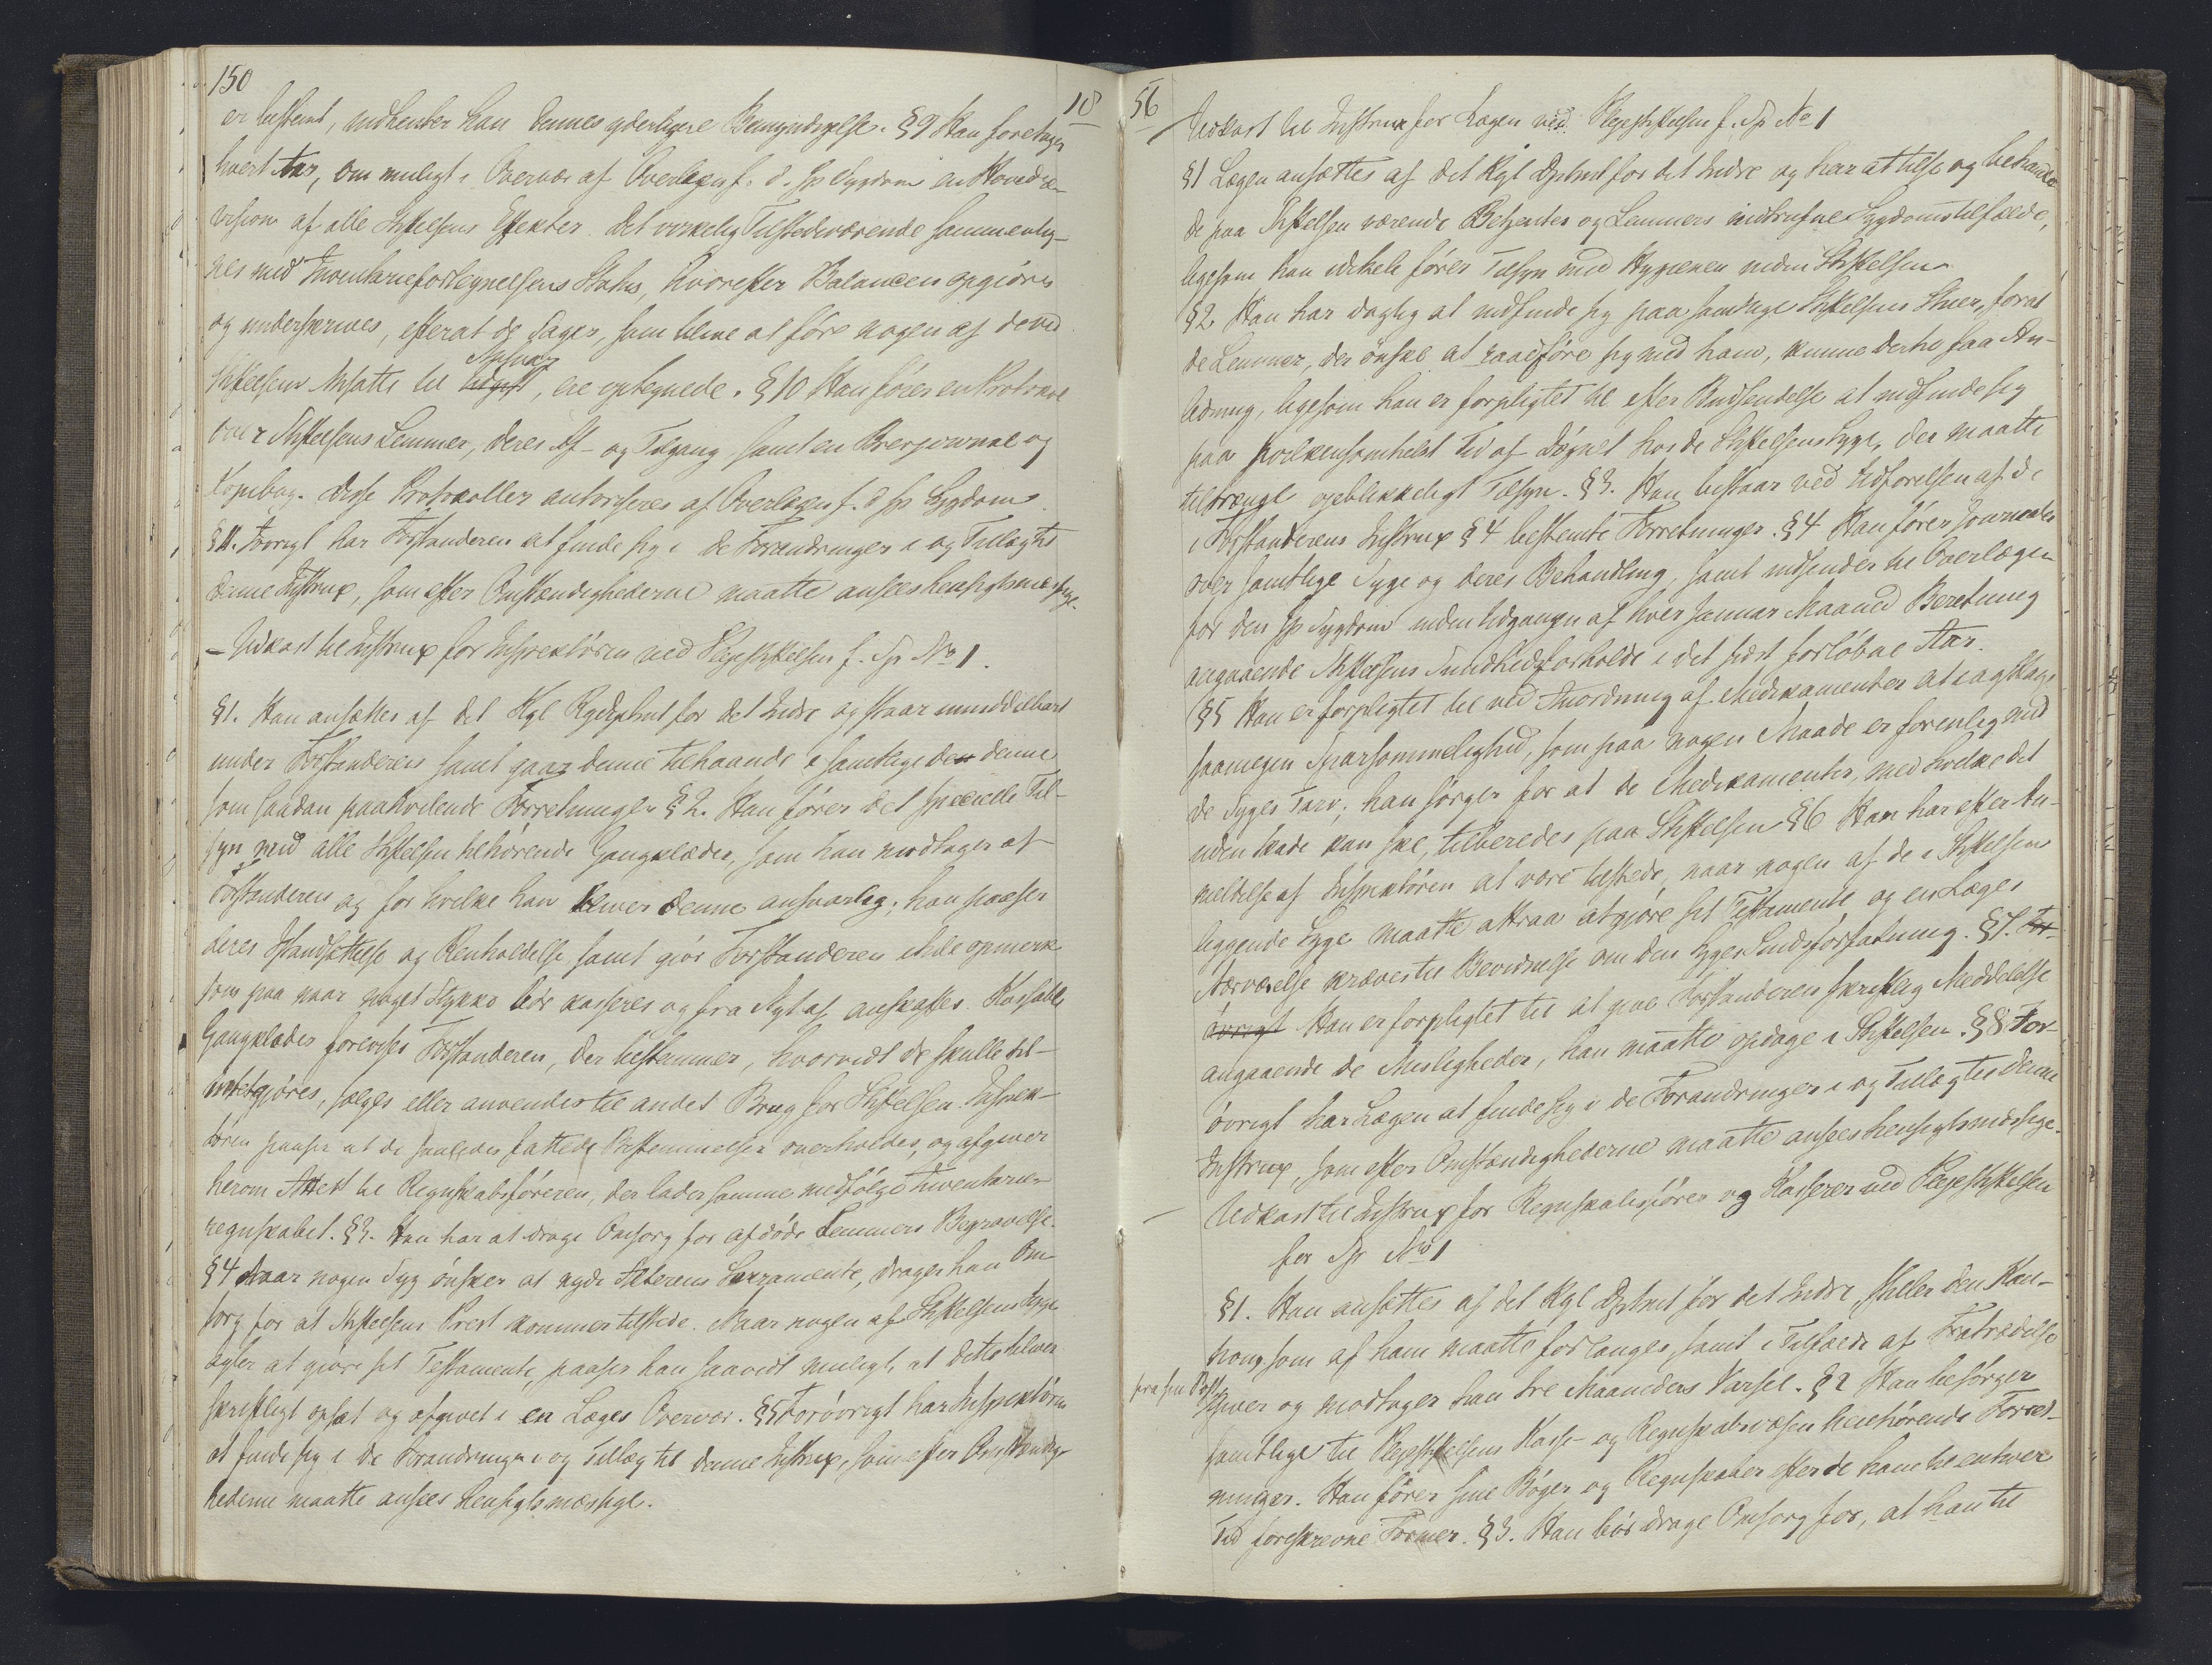 150
er bestemt, indhenter han dennes yderligere Bemyndigelse. §9 Han foretager
hvert Aar, om muligt i Overvær af Overlægen f. d. sp Sygdom en Hovedre-
vision af alle Stiftelsens Effekter. Det virkelig Tilstedeværende sammenlig-
nes med Inventariefortegnelsens Status, hvorefter Balancen opgiøres
og underskrives, efterat de Sager, som blive at føre nogen af de ved
Stiftelsen Ansatte til Ansvar, ere optegnede. §10 Han fører en Protokol
over Stiftelsens Lemmer, deres Af- og Tilgang samt en Brevjournal og
Kopibog. Disse Protokoller autoriseres af Overlægen f. d sp Sygdom.
§11. Iøvrigt har Forstanderen at finde sig i de Forandringer i og Tillæg til
denne Instrux, som efter Omstændighederne maatte ansees hensigtsmæssige.
- Udkast til Instrux for Inspektøren ved Plejestiftelsen f. Sp No 1.
§1. Han ansættes af det Kgl Rgdeptmt for det Indre og staar umiddelbart
under Forstanderen samt gaar denne tilhaande i samtlige den denne
som saadan paahvilende Forretninger §2. Han fører det specielle Til-
syn med alle Stiftelsen tilhørende Gangklæder, som han modtager af
Forstanderen og for hvilke han bliver denne ansvarlig; han paaser
deres Istandsættelse og Renholdelse samt giør Forstanderen itide opmerk-
som paa naar noget Stykke bør kasseres og fra Nyt af anskaffes. Kassable
Gangklæder forevises Forstanderen, der bestemmer, hvorvidt de skulle til-
intetgjøres, sælges eller anvendes til andet Brug for Stiftelsen. Inspek-
tøren paaser at de saaledes fattede Bestemmelser overholdes, og afgiver
herom Attest til Regnskabsføreren, der lader samme medfølge Inventarie-
regnskabet. §3. Han har at drage Omsorg for afdøde Lemmers Begravelse.
§4 Naar nogen Syg ønsker at nyde Alterens Sakramente, drager han Om-
sorg for at Stiftelsens Prest kommer tilstede. Naar nogen af Stiftelsens Syge
agter at giøre sit Testamente, paaser han saavidt muligt, at dette bliver
skriftligt opsat og afgivet i en Læges Overvær. §5 Forøvrigt har Inspektøren
at finde sig i de Forandringer i og Tillæg til denne Instrux, som efter Omstændig-
hederne maatte ansees hensigtsmæssige.
10
56
Udkast til Instrux for Lægen ved Plejestiftelsen f. Sp No 1
§1 Lægen ansættes af det Kgl Dptmt for det Indre og har at tilse og behandle
de paa Stiftelsen værende Betjentes og Lemmers indtrufne Sygdomstilfælde,
ligesom han idelig fører Tilsyn med Hygienen inden Stiftelsen
§2 Han har daglig at indfinde sig paa samtlige Stiftelsens Stuer, forat
de Lemmer, der ønske at raadføre sig med ham, kunne dertil faa An-
ledning, ligesom han er forpligtet til efter Budsendelse at indfinde sig
paa hvilkensomhelst Tid af Døgnet hos de Stiftelsens Syge, der maatte
tiltrænge øjeblikkeligt Tilsyn. §3. Han bistaar ved Udførelsen af de
i Forstanderens Instrux §4 bestemte Forretninger. §4 Han fører Journaler
over samtlige Syge og deres Behandling, samt indsender til Overlægen
for den sp Sygdom inden Udgangen af hver Januar Maaned Beretning
angaaende Stiftelsens Sundhedsforholde i det sidst forløbne Aar.
§5 Han er forpligtet til ved Anordning af Medikamenter at iagttage
saamegen Sparsommelighed, som paa nogen Maade er forenlig med
de Syges Tarv; han sørger for at de Medikamenter, med hvilke det
uden Skade kan ske, tilberedes paa Stiftelsen §6 Han har efter An-
meldelse af Inspektøren at være tilstede, naar nogen af de i Stiftelsen
liggende Syge maatte attraa at gjøre sit Testamente og en Læges
Nærværelse kræves til Bevidnelse om den Syges Sindsforfatning. §7. For-
øvrigt Han er forpligtet til at give Forstanderen skriftlig Meddelelse
angaaende de Misligheder, han maatte opdage i Stiftelsen. §8 For-
øvrigt har Lægen at finde sig i de Forandringer i og Tillæg til denne
Instrux, som efter Omstændighederne maatte ansees hensigtsmæssige.
Udkast til Instrux for Regnskabsfører og Kasserer ved Plejestiftelsen
for Sp No 1
§1. Han ansættes af det Kgl Dptmt for det Indre, stiller den Kau-
tion, som af ham maatte forlanges, samt i Tilfælde af Fratrædelse
fra sin Post giver og modtager han tre Maaneders Varsel. §2 Han besørger
samtlige til Plejestiftelsens Kasse- og Regnskabsvæsen henhørende Forret-
ninger. Han fører sine Bøger og Regnskaber efter de ham til enhver
Tid foreskrevne Former. §3. Han bør drage Omsorg for, at han til